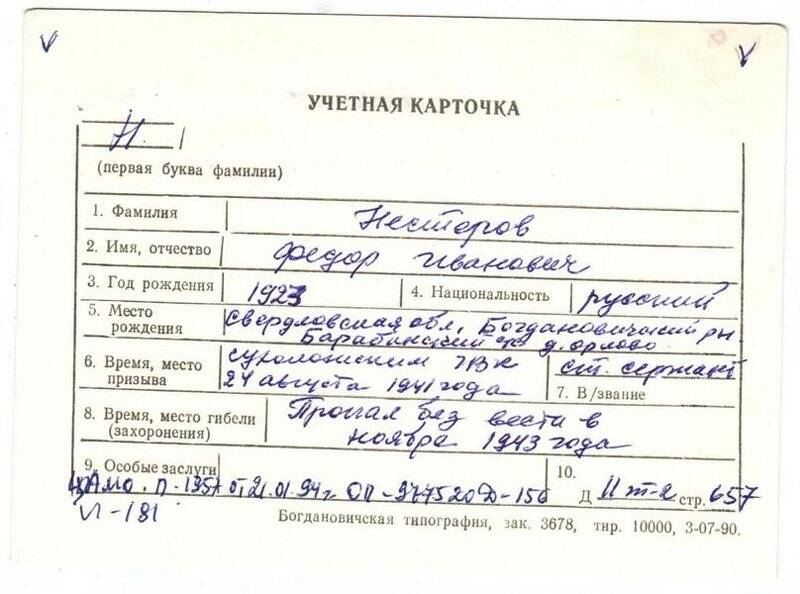 УЧЕТНАЯ КАРТОЧКА
Н.
(первая буква фамилии)
1. Фамилия Нестеров
2. Имя, отчество Федор Иванович
3. Год рождения 1923 4. Национальность русский
5. Место рождения Свердловская обл., Богдановический рн
Барабинский д. Орлово
6. Время, место призыва Сухоложским РВК
24 августа 1941 года
ст. сержант
7. В/звание
8. Время, место гибели (захоронения) Пропал без вести в
ноябре 1943 года
9. Особые заслуги
10.
ЦАМО. П-1957 от 21.01.94г. ОП-977520 Д-156 Д II т-2 стр. 657
VI-181
Богдановичская типография, зак. 3678, тир. 10000, 3-07-90.